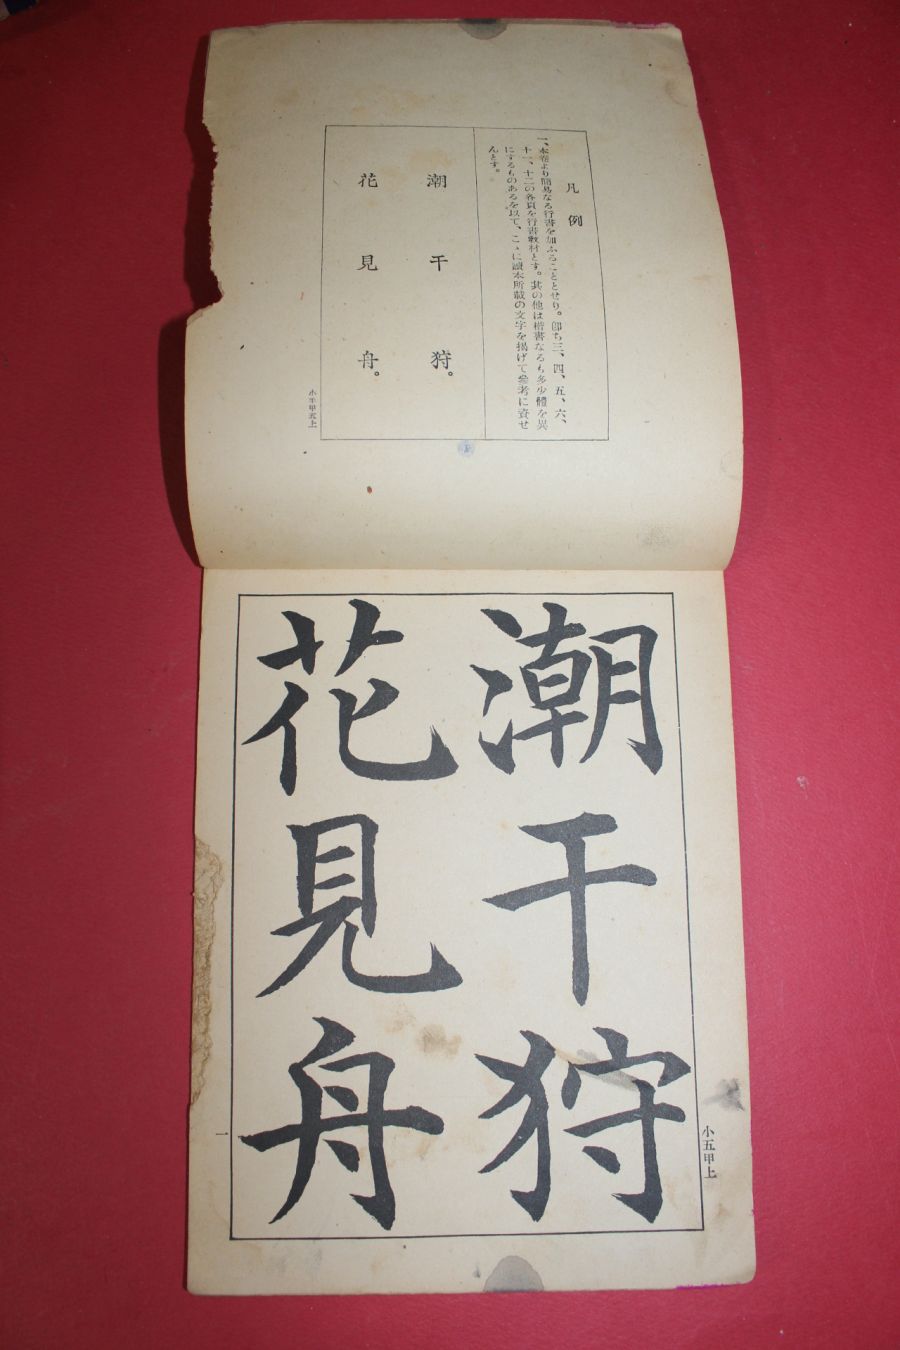 凡例
一、本卷より簡易なる行書を加ふることとせり。卽ち三、四、五、六、
十一、十二の各頁を行書敎材とす。其の他は楷書なるも多少體を異
にするものあるを以て、こゝに讀本所載の文字を揭げて參考に資せ
んとす。
潮干狩。
花見舟。
小五甲上
潮干狩
花見舟
小五甲上
一